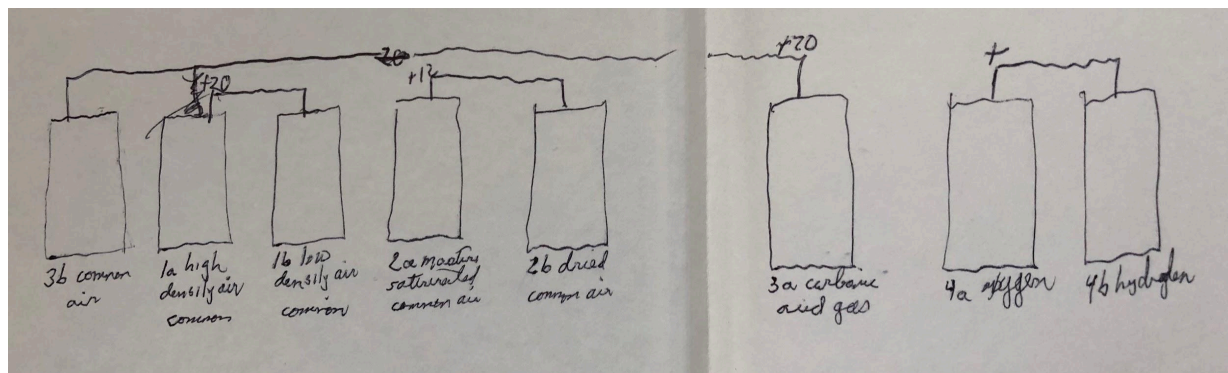 +20
+20
+12
+
3b common
air
1a high
density air
common
1b low
density air
common
2a
common air
2b dried
common air
3a carbonic
acid gas
4a oxygen
4b hydrogen